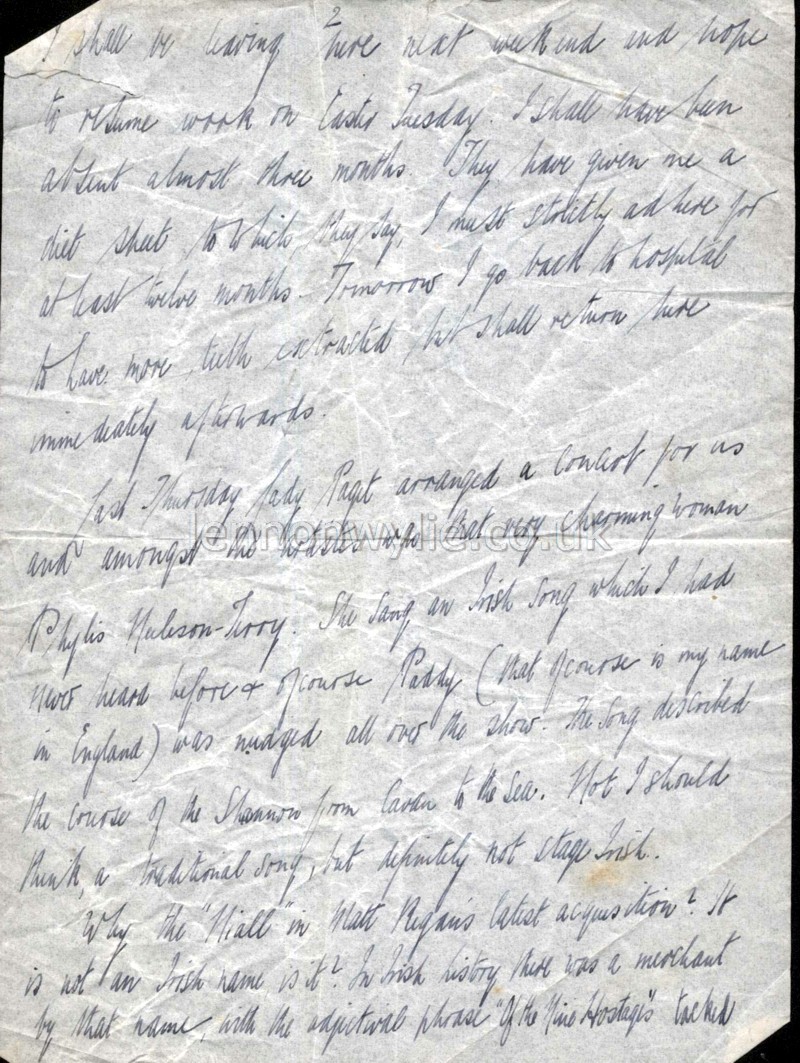 2
I shall be leaving here next weekend and hope
to resume work on Easter Tuesday. I shall have been
absent almost three months. They have given me a
diet sheet to which, they say, I must strictly adhere for
at least twelve months. Tomorrow I go back to hospital
to have more teeth extracted but shall return here
immediately afterwards.
Last Thursday Lady Paget arranged a concert for us
and amongst the artistes was that very charming woman
lennonwylie.co.uk
Phylis Neilson-Terry. She sang an Irish song which I had
never heard before & ofcourse Paddy (that ofcourse is my name
in England) was nudged all over the show. The song described
the course of the Shannon from Cavan to the sea. Not I should
think, a traditional song, but definitely not stage Irish.
Why the "Niall" in Matt Regan's latest acquisition? It
is not an Irish name is it? In Irish history there was a merchant
by that name, with the adjectival phrase "Of the Nine Hostages" tacked